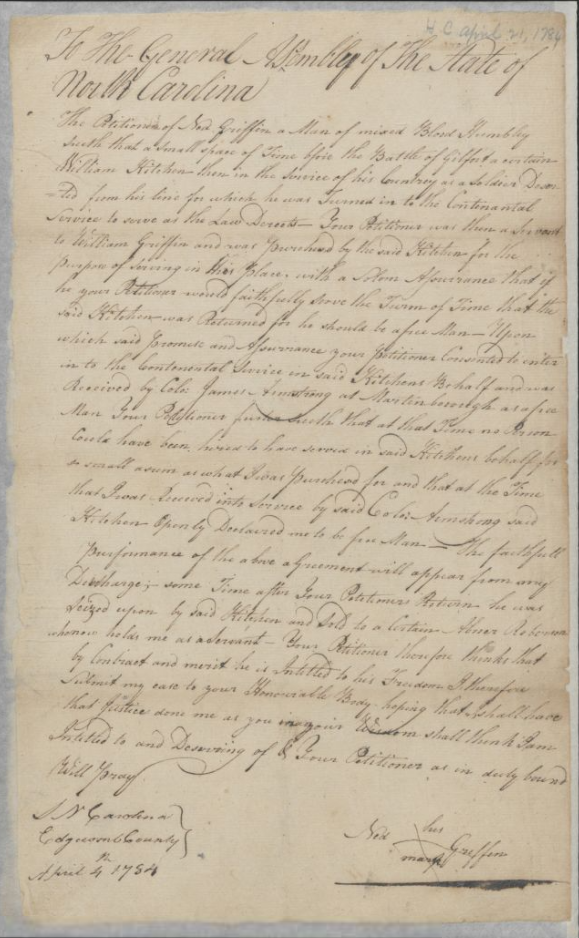 H. C. april 21, 1784
To The General Assembley of The State of
North Carolina
The Petition of Ned Griffin a Man of mixed Blood Humbley
Saeth that a Small space of Time before the Battle of Gilford a certain
William Kitchen then in the Service of his Countrey as a Soldier Deser-
-ted from his line for which he was Turned in to the Continental
Service to serve as the Law Directs — Your Petitioner was then a Servant
to William Griffin and was Purchesed by the said Kitchen for the
purpose of Serving in His place, with a Solom Assurance that if
he your Petitioner would faithfully serve the Turm of Time that the
said Kitchen was Returned for he should be a free Man — Upon
which said Promise and Assurance your Petitioner Consented to enter
in to the Continental Service in said Kitchens Behalf and was
Received by Colo: James Armstrong at Martinborough as a free
Man Your Petitioner furter saeth that at that Time no Person
Could have been hired to have served in said Kitchens behalf for
so small a sum as what I was Purchesed for and that at the Time
that I was Received into Service by said Colo: Armstrong said
Kitchen Openly Declaired me to be free Man — The faithfull
Purformance of the above agreement will appear from my
Discharge; — some Time after Your Petitioners Return he was
Seized upon by said Kitchen and Sold to a Certain Abner Roberson
who now holds me as a Servant — Your Petitioner therefore thinks that
by Contract and merit he is Intitled to his Freedom I therefore
submit my case to your Honourable Body hoping that I shall have
that Justice done me as you in your Wisdom shall think I am
Intitled to and Deserving of & Your Petitioner as in duty bound
Will Pray
S N Carolina
Edgecomb County
April 4th 1784
his
Ned Griffin
mark